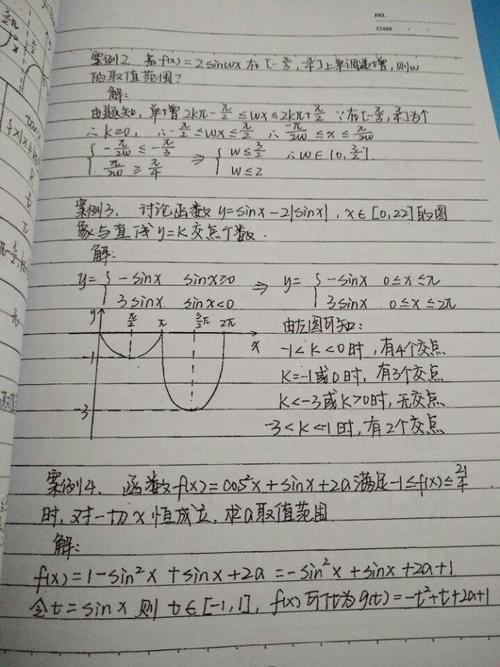 NO.
Date
案例2 若f(x)=2sinwx在[-π/3,π/4]上单调递增,则w
的取值范围?
解:
由题知,单增2kπ-π/2≤wx≤2kπ+π/2 ∵在[-π/3,π/4]为个
∴k=0, ∴-π/2≤wx≤π/2 ∴-π/2w≤x≤π/2w
{-π/2w≤-π/3 ⇒ {w≤3/2 ∴w∈(0,3/2].
π/2w≥π/4 w≤2
案例3. 讨论函数y=sinx-2|sinx|, x∈[0,2π]的图
象与直线y=k交点个数.
解:
y={-sinx sinx≥0 ⇒ y={-sinx 0≤x≤π
3sinx sinx<0 3sinx 0≤x≤2π
y π/2 π 3/2π 2π x
-1
-3
由左图可知:
-1<k<0时,有4个交点
k=-1或0时,有3个交点
k<-3或k>0时,无交点
-3<k<-1时,有2个交点
案例4. 函数f(x)=cos²x+sinx+2a满足-1≤f(x)≤21/4
时,对一切x恒成立,求a取值范围
解:
f(x)=1-sin²x+sinx+2a=-sin²x+sinx+2a+1
令t=sinx 则t∈[-1,1], f(x)可化为g(t)=-t²+t+2a+1